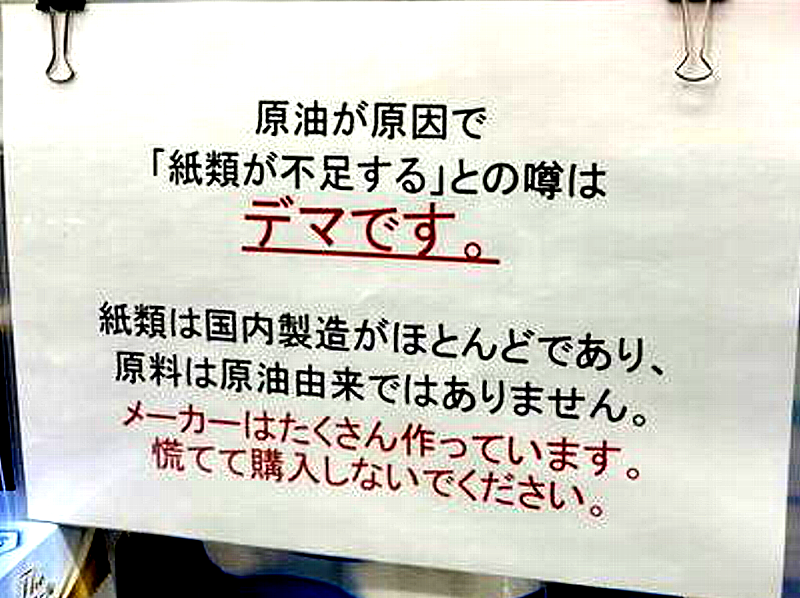 原油が原因で
「紙類が不足する」との噂は
デマです。
紙類は国内製造がほとんどであり、
原料は原油由来ではありません。
メーカーはたくさん作っています。
慌てて購入しないでください。